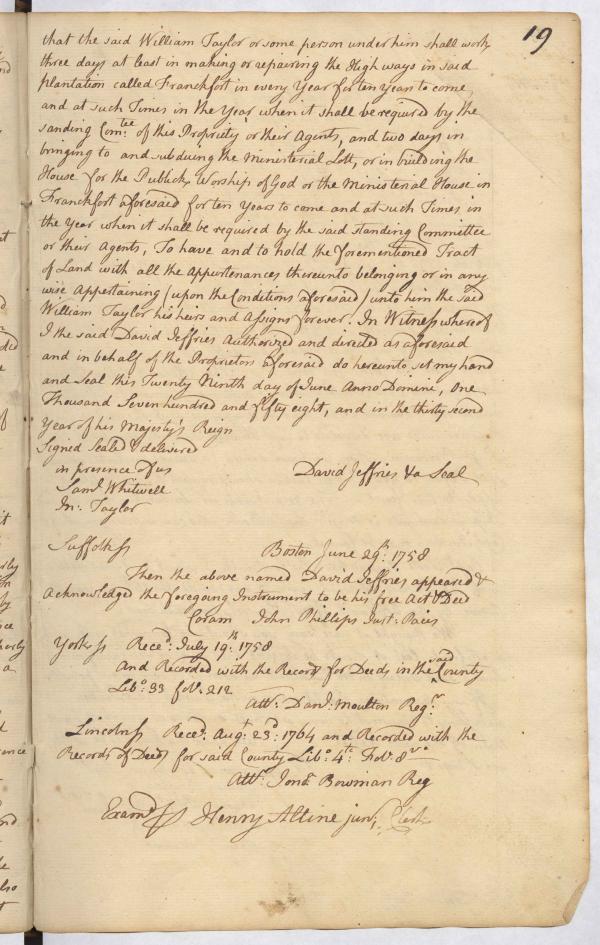 19
that the said William Taylor or some person under him shall work
three days at least in making or repairing the High ways in said
plantation called Franckfort in every Year for ten years to come,
and at such Times in the Year when it shall be requird by the
sanding Comtee. of this Propriety or their Agents, and two days in
bringing to and subduing the Ministerial Lott, or in building the
House for the Publick Worship of God or the Ministerial House in
Franckfort aforesaid for ten Years to come and at such Times in
the Year when it shall be required by the said standing Committee
or their Agents, To have and to hold the forementioned Tract
of Land with all the Appurtenances thereunto belonging or in any
wise Appertaining (upon the Conditions aforesaid) unto him the said
William Taylor his heirs and Assigns forever. In Witness whereof
I the said David Jeffries Authorized and directed as aforesaid
and in behalf of the Proprietors aforesaid do hereunto set my hand
and Seal this Twenty Ninth day of June Anno Domini, One
Thousand Seven hundred and fifty eight, and in the thirty second
Year of his Majesty's Reign
Signed Sealed & delivered
in presence of us David Jeffries & a Seal
Saml. Whitwell
Jn: Taylor
Suffolk ss Boston June 29th: 1758
Then the above named David Jeffries appeared &
Acknowledged the foregoing Instrument to be his free Act & Deed
Coram John Phillips Just: Pacis
York ss Recd: July 19th: 1758
And Recorded with the Records for Deeds in the said County
Libo: 33 fol. 212
Attr. Danl: Moulton Regr.
Lincoln ss Recd: Augt: 23d: 1764 and Recorded with the
Records of Deeds for said County Libo: 4th: Fol: 8vo
Attr. Jona Bowman Reg
Examd pr Henry Alline junr; Clerk